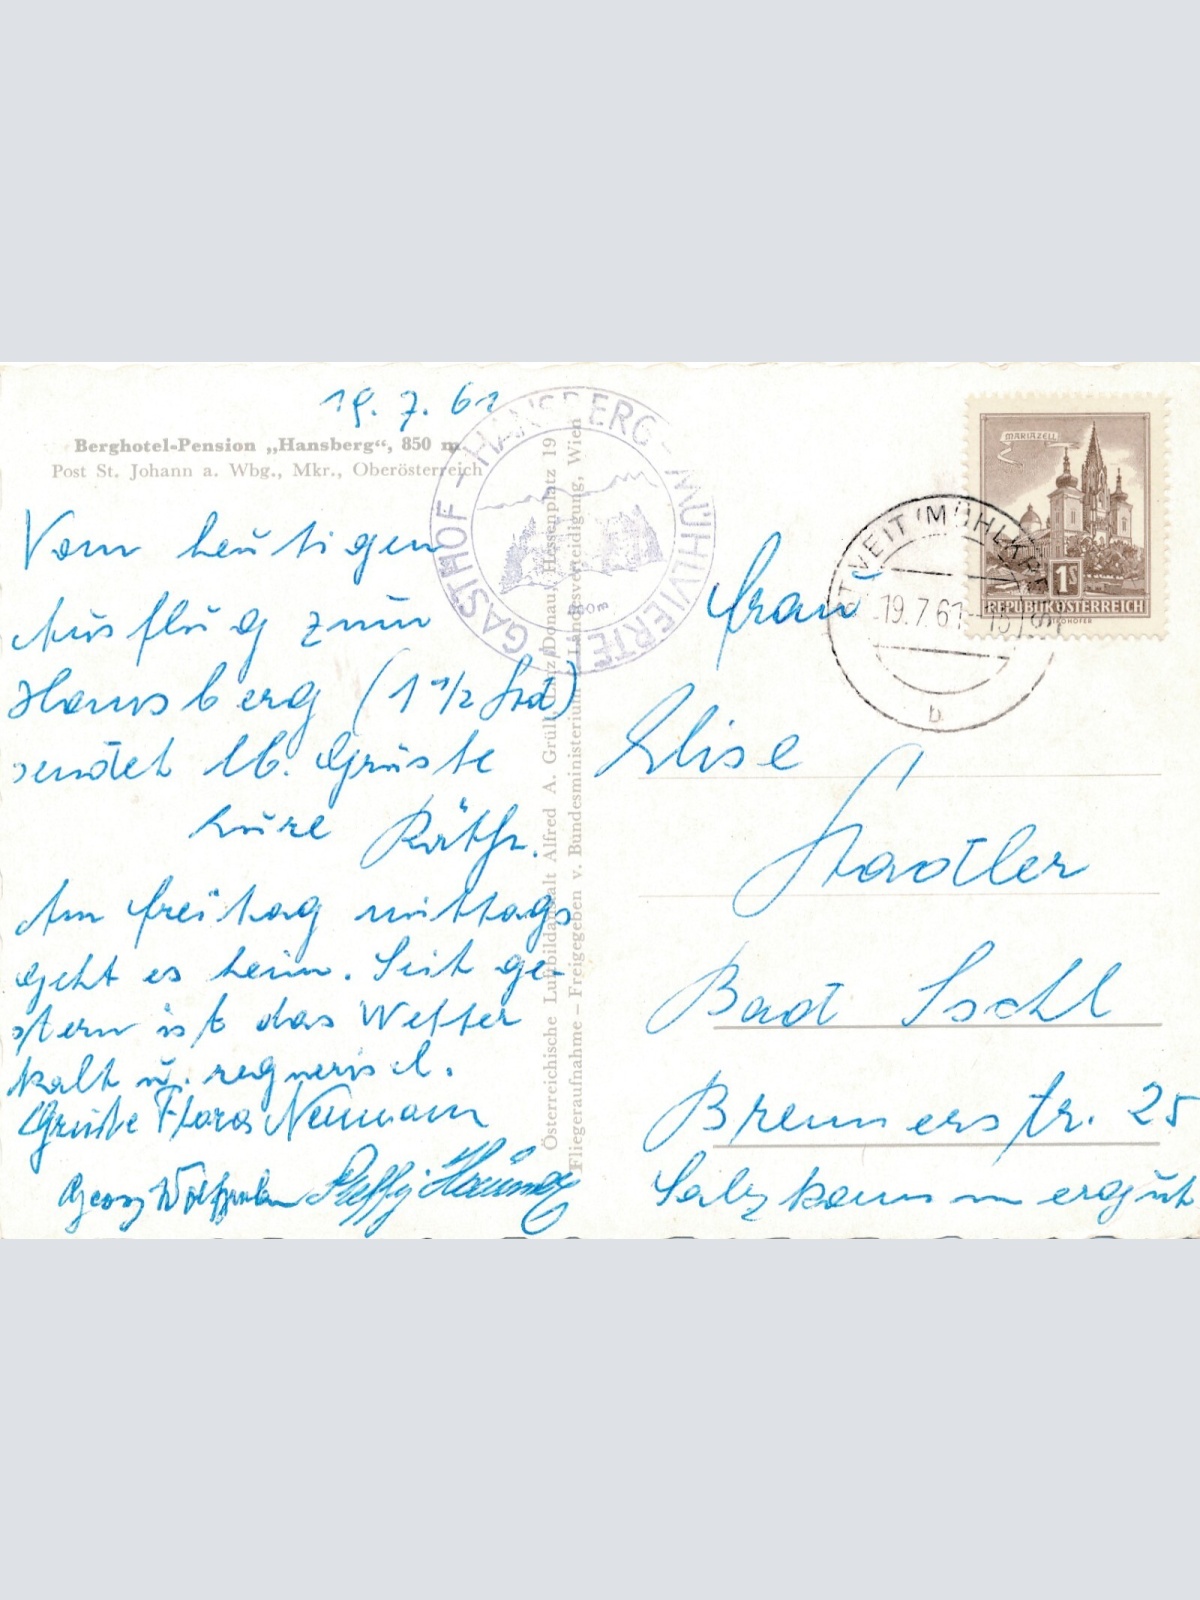 19. 7. 61
Berghotel-Pension „Hansberg“, 850 m
Post St. Johann a. Wbg., Mkr., Oberösterreich
Vom heutigen
Ausflug zum
Hansberg (1 1/2 Std)
sendet lb. Grüsse
Eure Käthe.
Am Freitag mittags
geht es heim. Seit ge-
stern ist das Wetter
kalt u. regnerisch.
Grüsse Flora Neumann
Georg
Steffy
GASTHOF - HANSBERG - MÜHLVIERTEL
Österreichische Luftbildanstalt Alfred A. Grüll, Linz/Donau, Hessenplatz 19
Fliegeraufnahme – Freigegeben v. Bundesministerium Landesverteidigung, Wien
MARIAZELL
1S
REPUBLIK ÖSTERREICH
ST VEIT (MÜHLKREIS)
19.7.61-15
b
Frau
Elise
Stadler
Bad Ischl
Brennerstr. 25
Salzkammergut